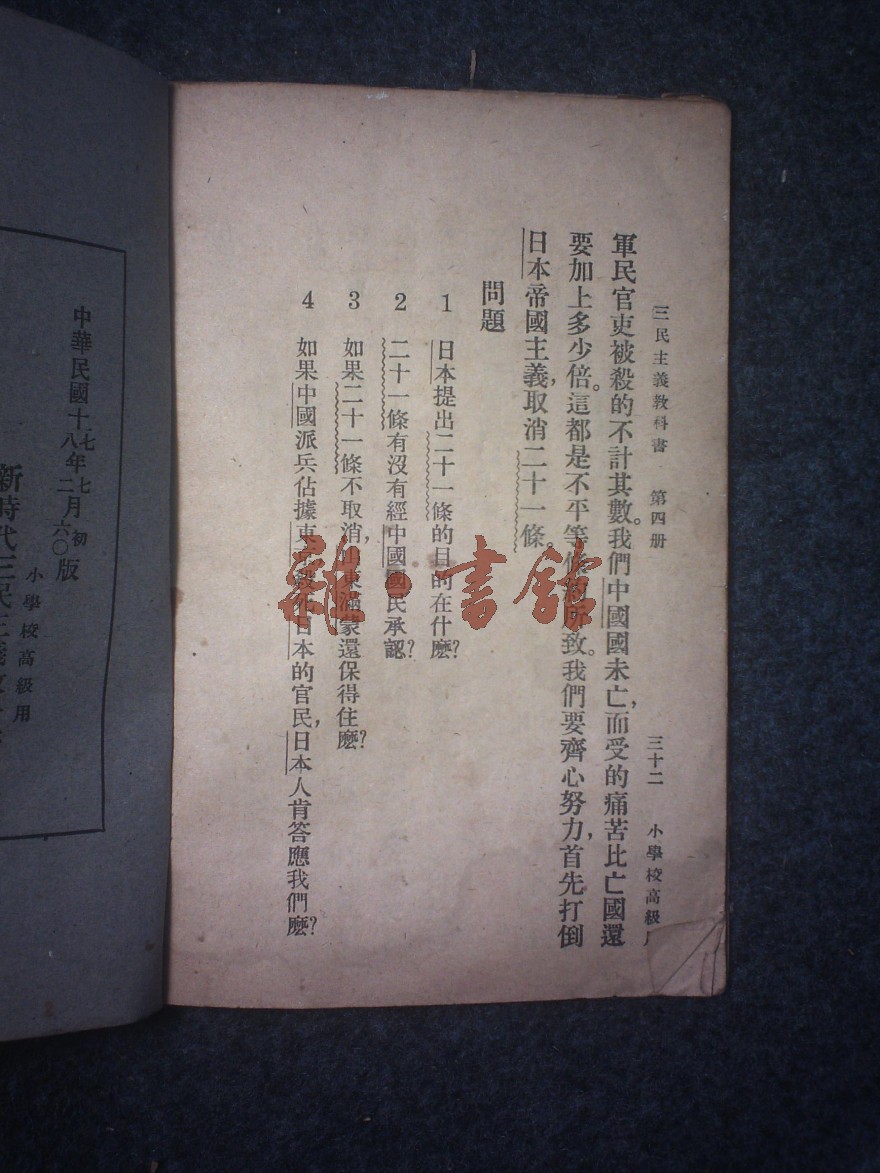 三民主義教科書 第四册 三十二 小學校高級
軍民官吏被殺的不計其數。我們中國未亡，而受的痛苦比亡國還
要加上多少倍。這都是不平等條約所致。我們要齊心努力，首先打倒
日本帝國主義，取消二十一條。
問題
1 日本提出二十一條的目的在什麽？
2 二十一條有沒有經中國國民承認？
3 如果二十一條不取消，山東滿蒙還保得住麽？
4 如果中國派兵佔據東京，殺死日本的官民，日本人肯答應我們麽？
雜·書館
中華民國十七年七月初版
八年二月六〇版
小學校高級用
新時代三民主義